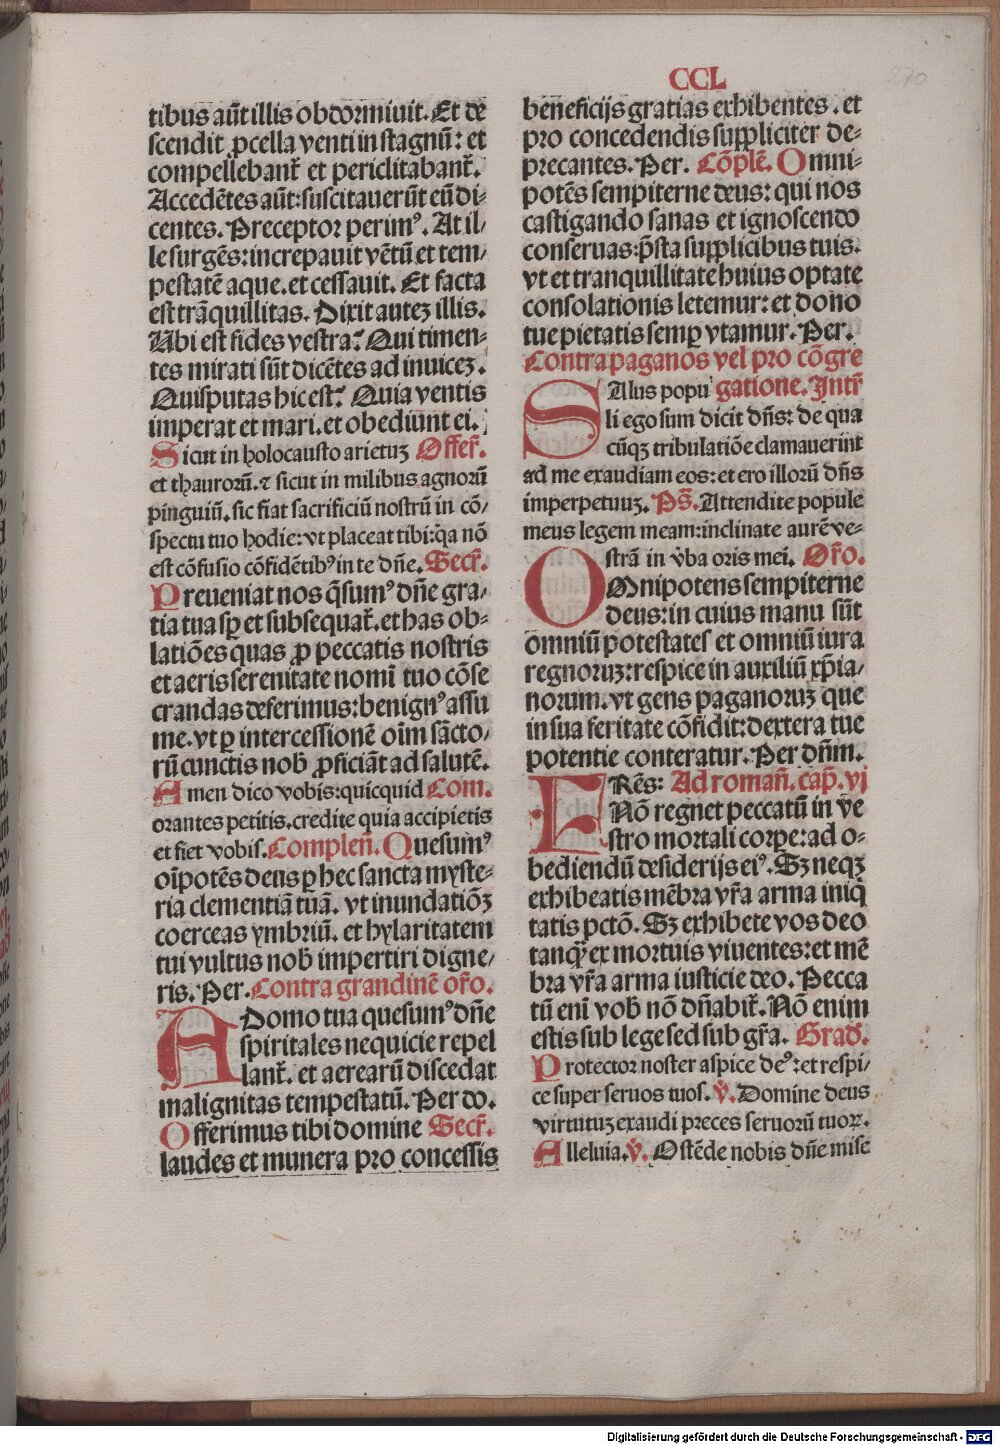 CCL
270
tibus aūt illis obdormiuit. Et de
scendit ꝓcella venti in stagnū: et
compellebant᷑ et periclitabant᷑.
Accedētes aūt: suscitauerūt eū di-
centes. Preceptor perimꝰ. At il/
le surgēs: increpauit vētū et tem/
pestatē aque. et cessauit. Et facta
est trāquillitas. Dixit auteꝫ illis.
Ubi est fides vestra? Qui timen-
tes mirati sūt dicētes ad inuiceꝫ.
Quis putas hic est? Quia ventis
imperat et mari. et obediunt ei.
Sicut in holocausto arietuꝫ Offer᷑.
et thaurorū. ⁊ sicut in milibus agnorū
pinguiū. sic fiat sacrificiū nostrū in cō/
spectu tuo hodie: vt placeat tibi: q̄a nō
est cōfusio cōfidētibꝰ in te dn̄e. Secr᷑.
Preueniat nos q̄sumꝰ dn̄e gra/
tia tua sꝑ et subsequat᷑. et has ob-
latiōes quas ꝓ peccatis nostris
et aeris serenitate nomī tuo cōse
crandas deferimus: benignꝰ assu
me. vt ꝑ intercessionē oīm sācto/
rū cunctis nob̄ ꝓficiāt ad salutē.
Amen dico vobis: quicquid Com.
orantes petitis. credite quia accipietis
et fiet vobis. Complen̄. Quesumꝰ
oīpotēs deus ꝑ hec sancta myste-
ria clementiā tuā. vt inundatiōꝫ
coerceas ymbriū. et hylaritatem
tui vultus nob̄ impertiri digne/
ris. Per. Contra grandinē or̄o.
A Domo tua quesumꝰ dn̄e
spiritales nequicie repel
lant᷑. et aerearū discedat
malignitas tempestatū. Per do.
Offerimus tibi domine Secr᷑.
laudes et munera pro concessis
beneficijs gratias exhibentes. et
pro concedendis suppliciter de-
precantes. Per. Cōplē. Omni-
potēs sempiterne deus: qui nos
castigando sanas et ignoscendo
conseruas: p̄sta supplicibus tuis.
vt et tranquillitate huius optate
consolationis letemur: et dono
tue pietatis semꝑ vtamur. Per.
Contra paganos vel pro cōgre
SAlus popu gatione. Intr᷑
li ego sum dicit dn̄s: de qua
cūqꝫ tribulatiōe clamauerint
ad me exaudiam eos: et ero illorū dn̄s
imperpetuuꝫ. Ps̄. Attendite popule
meus legem meam: inclinate aurē ve-
strā in v̄ba oris mei. Or̄o.
OMnipotens sempiterne
deus: in cuius manu sūt
omniū potestates et omniū iura
regnoruꝫ: respice in auxiliū xp̄ia-
norum. vt gens paganoruꝫ que
in sua feritate cōfidit: dextera tue
potentie conteratur. Per dn̄m.
FRēs: Ad roman̄. cap̄. vj
Nō regnet peccatū in ve
stro mortali corꝑe: ad o-
bediendū desiderijs eiꝰ. Sꝫ neqꝫ
exhibeatis mēbra vr̄a arma iniq̄
tatis pctō. Sꝫ exhibete vos deo
tanq̄ ex mortuis viuentes: et mē
bra vr̄a arma iusticie deo. Pecca
tū enī vob̄ nō dn̄abit᷑. Nō enim
estis sub lege sed sub gr̄a. Grad̄.
Protector noster aspice deꝰ: et respi/
ce super seruos tuos. ℣. Domine deus
virtutuꝫ exaudi preces seruorū tuoꝝ.
Alleluia. ℣. Ostēde nobis dn̄e mise
Digitalisierung gefördert durch die Deutsche Forschungsgemeinschaft - DFG